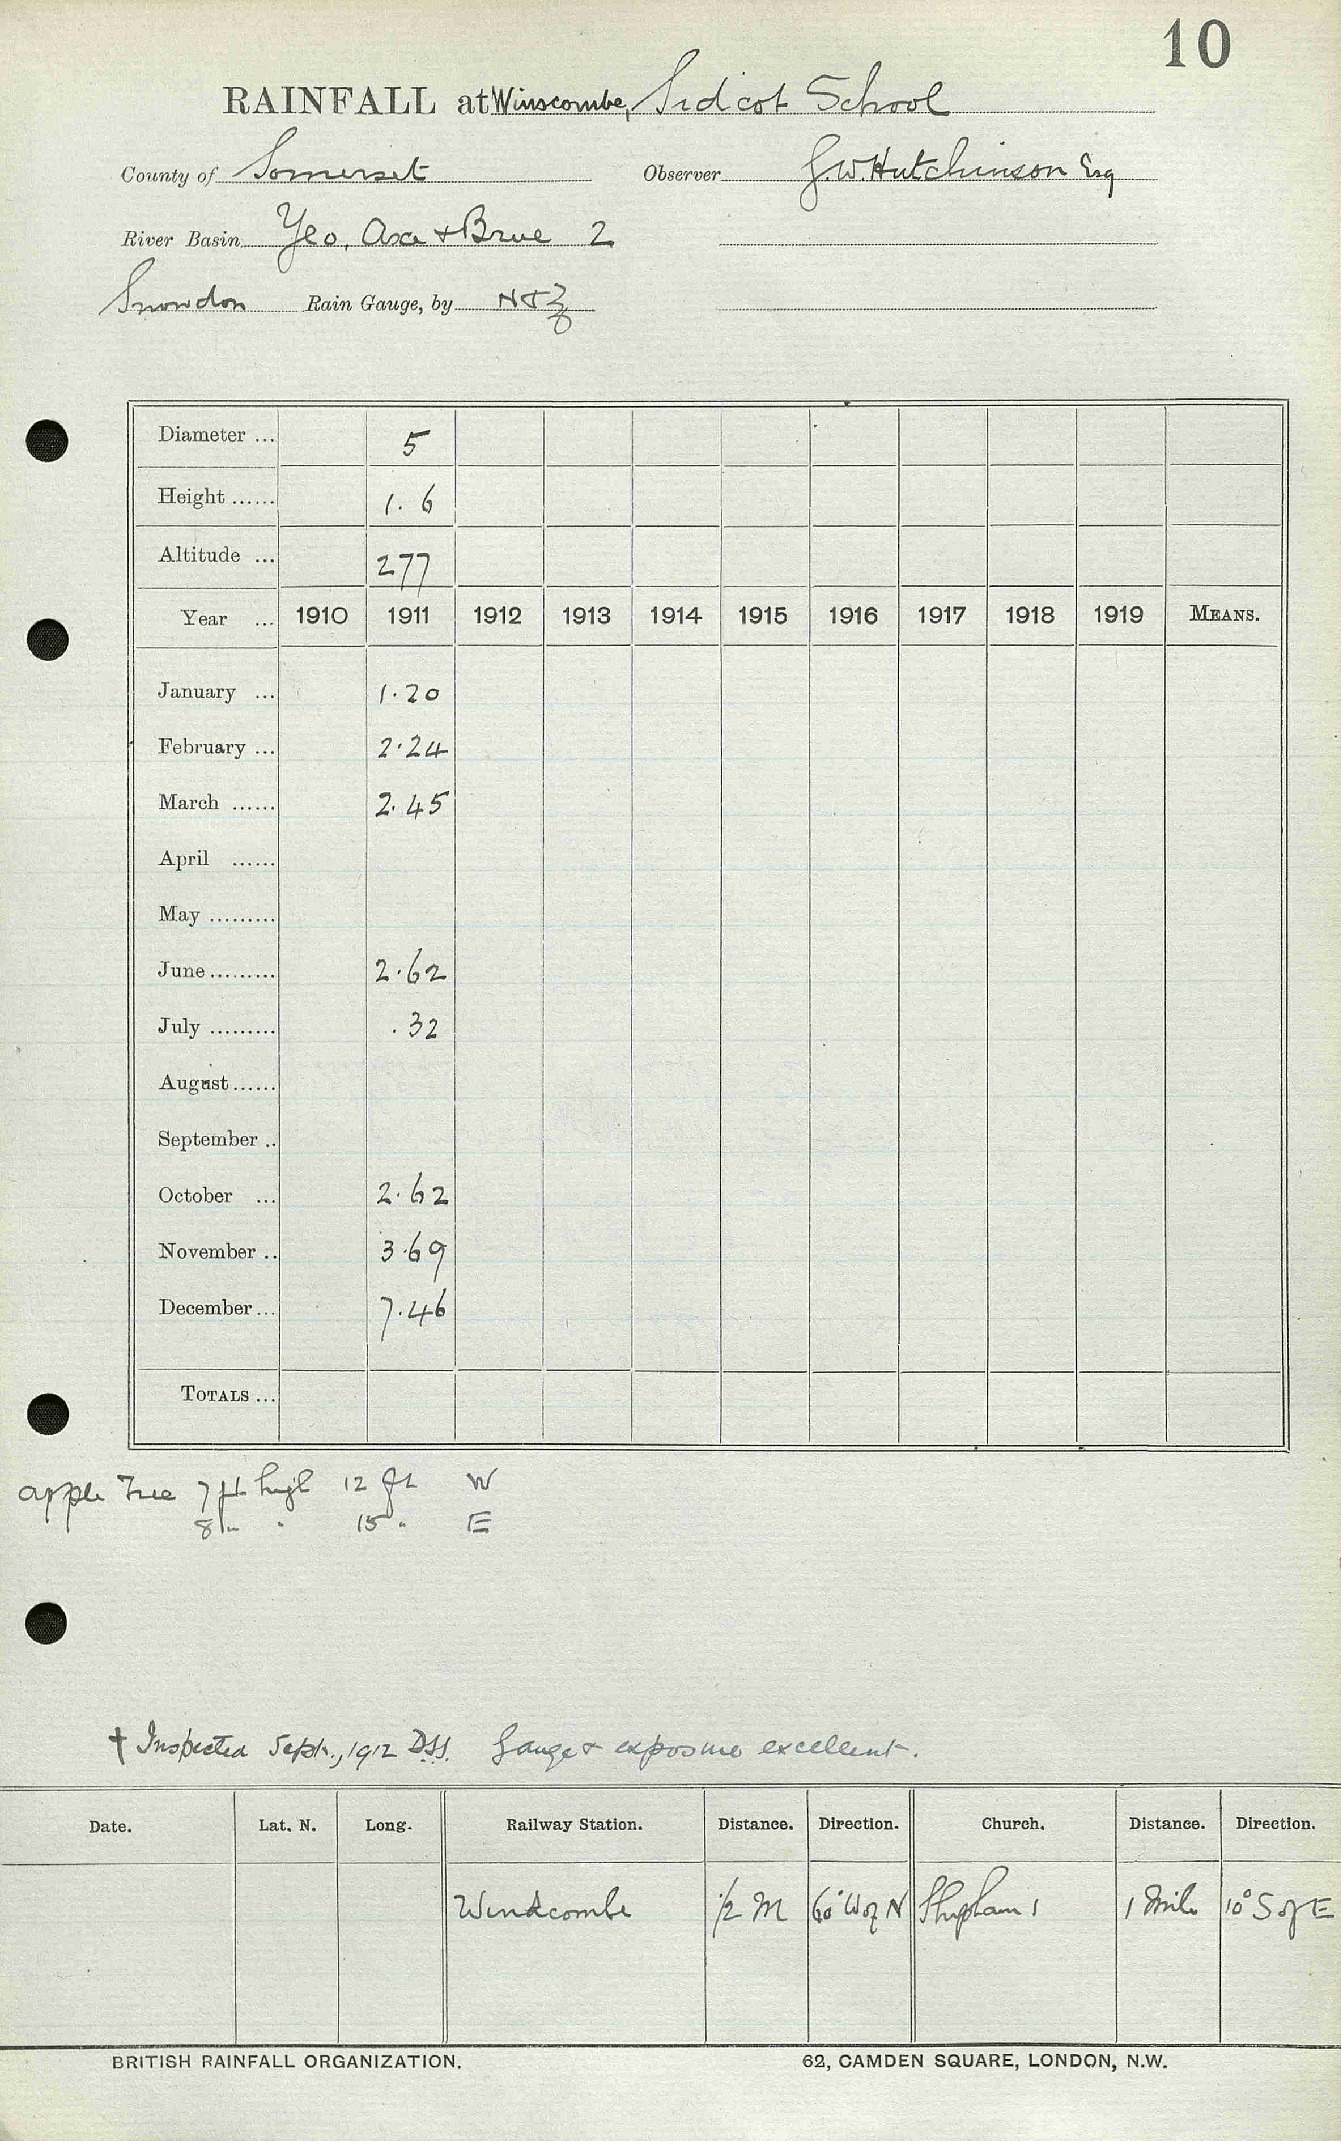 10
RAINFALL at Winscombe, Sidcot School
County of Somerset Observer J.W. Hutchinson Esq
River Basin Yeo, Axe + Brue 2
Snowdon Rain Gauge, by N&Z
Diameter ... 5
Height ...... 1.6
Altitude ... 277
Year ... 1910 1911 1912 1913 1914 1915 1916 1917 1918 1919 MEANS.
January ... 1.20
February ... 2.24
March ...... 2.45
April ......
May .........
June ......... 2.62
July ......... .32
August ......
September ..
October ... 2.62
November .. 3.69
December ... 7.46
TOTALS ...
apple Tree 7 ft high 12 ft W
8 " " 15 " E
† Inspected Sept., 1912 DSS. Gauge + exposure excellent.
Date. Lat. N. Long. Railway Station. Distance. Direction. Church. Distance. Direction.
Windcombe 1/2 M 60° W of N Shipham 1 Mile 10° S of E
BRITISH RAINFALL ORGANIZATION. 62, CAMDEN SQUARE, LONDON, N.W.